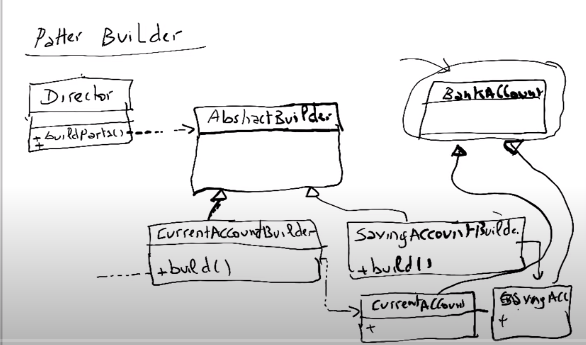 Patter Builder
Director
+buildParts()
+
AbstractBuilder
BankAccount
CurrentAccountBuilder
+build()
SavingAccountBuilde.
+build()
CurrentAccount
+
SavingAcc
+